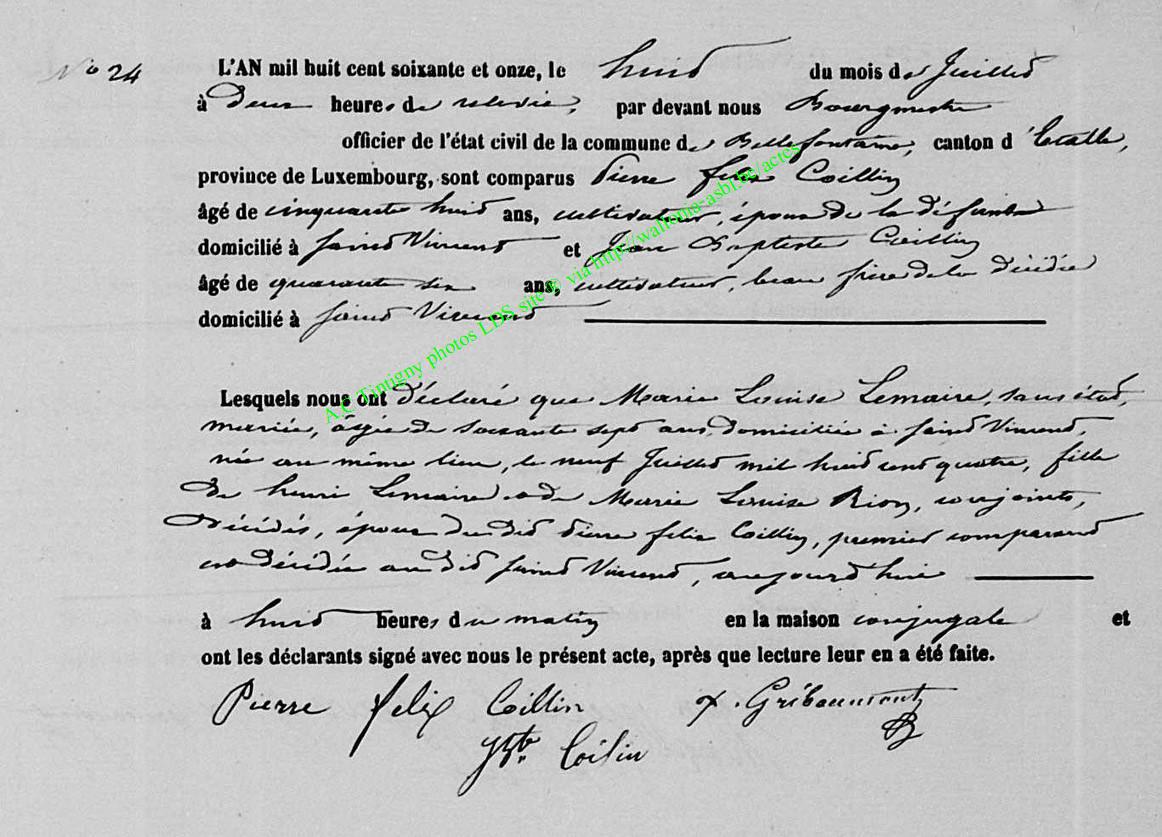 No 24
L'AN mil huit cent soixante et onze, le huit du mois de Juillet
à Deux heures de relevée, par devant nous Bourgmestre
officier de l'état civil de la commune de Bellefontaine, canton d'Etalle,
province de Luxembourg, sont comparus Pierre felix Coillin
âgé de cinquante huit ans, cultivateur, époux de la défunte
domicilié à Saint Vincent et Jean Baptiste Coillin
âgé de quarante six ans, cultivateur, beau frère de la décédée
domicilié à Saint Vincent
Lesquels nous ont déclaré que Marie Louise Lemaire, sans état,
mariée, âgée de soixante sept ans, domiciliée à Saint Vincent,
née au même lieu, le neuf Juillet mil huit cent quatre, fille
de henri Lemaire et de Marie Louise Rion, conjoints,
décédés, épouse du dit Pierre felix Coillin, premier comparant
est décédée au dit Saint Vincent, aujourd'hui
à huit heures du matin en la maison conjugale et
ont les déclarants signé avec nous le présent acte, après que lecture leur en a été faite.
Pierre felix Coillin Gribaumont
JBte Coilin
A.C Tintigny photos LDS site © via http://wallonia-asbl.be/actes